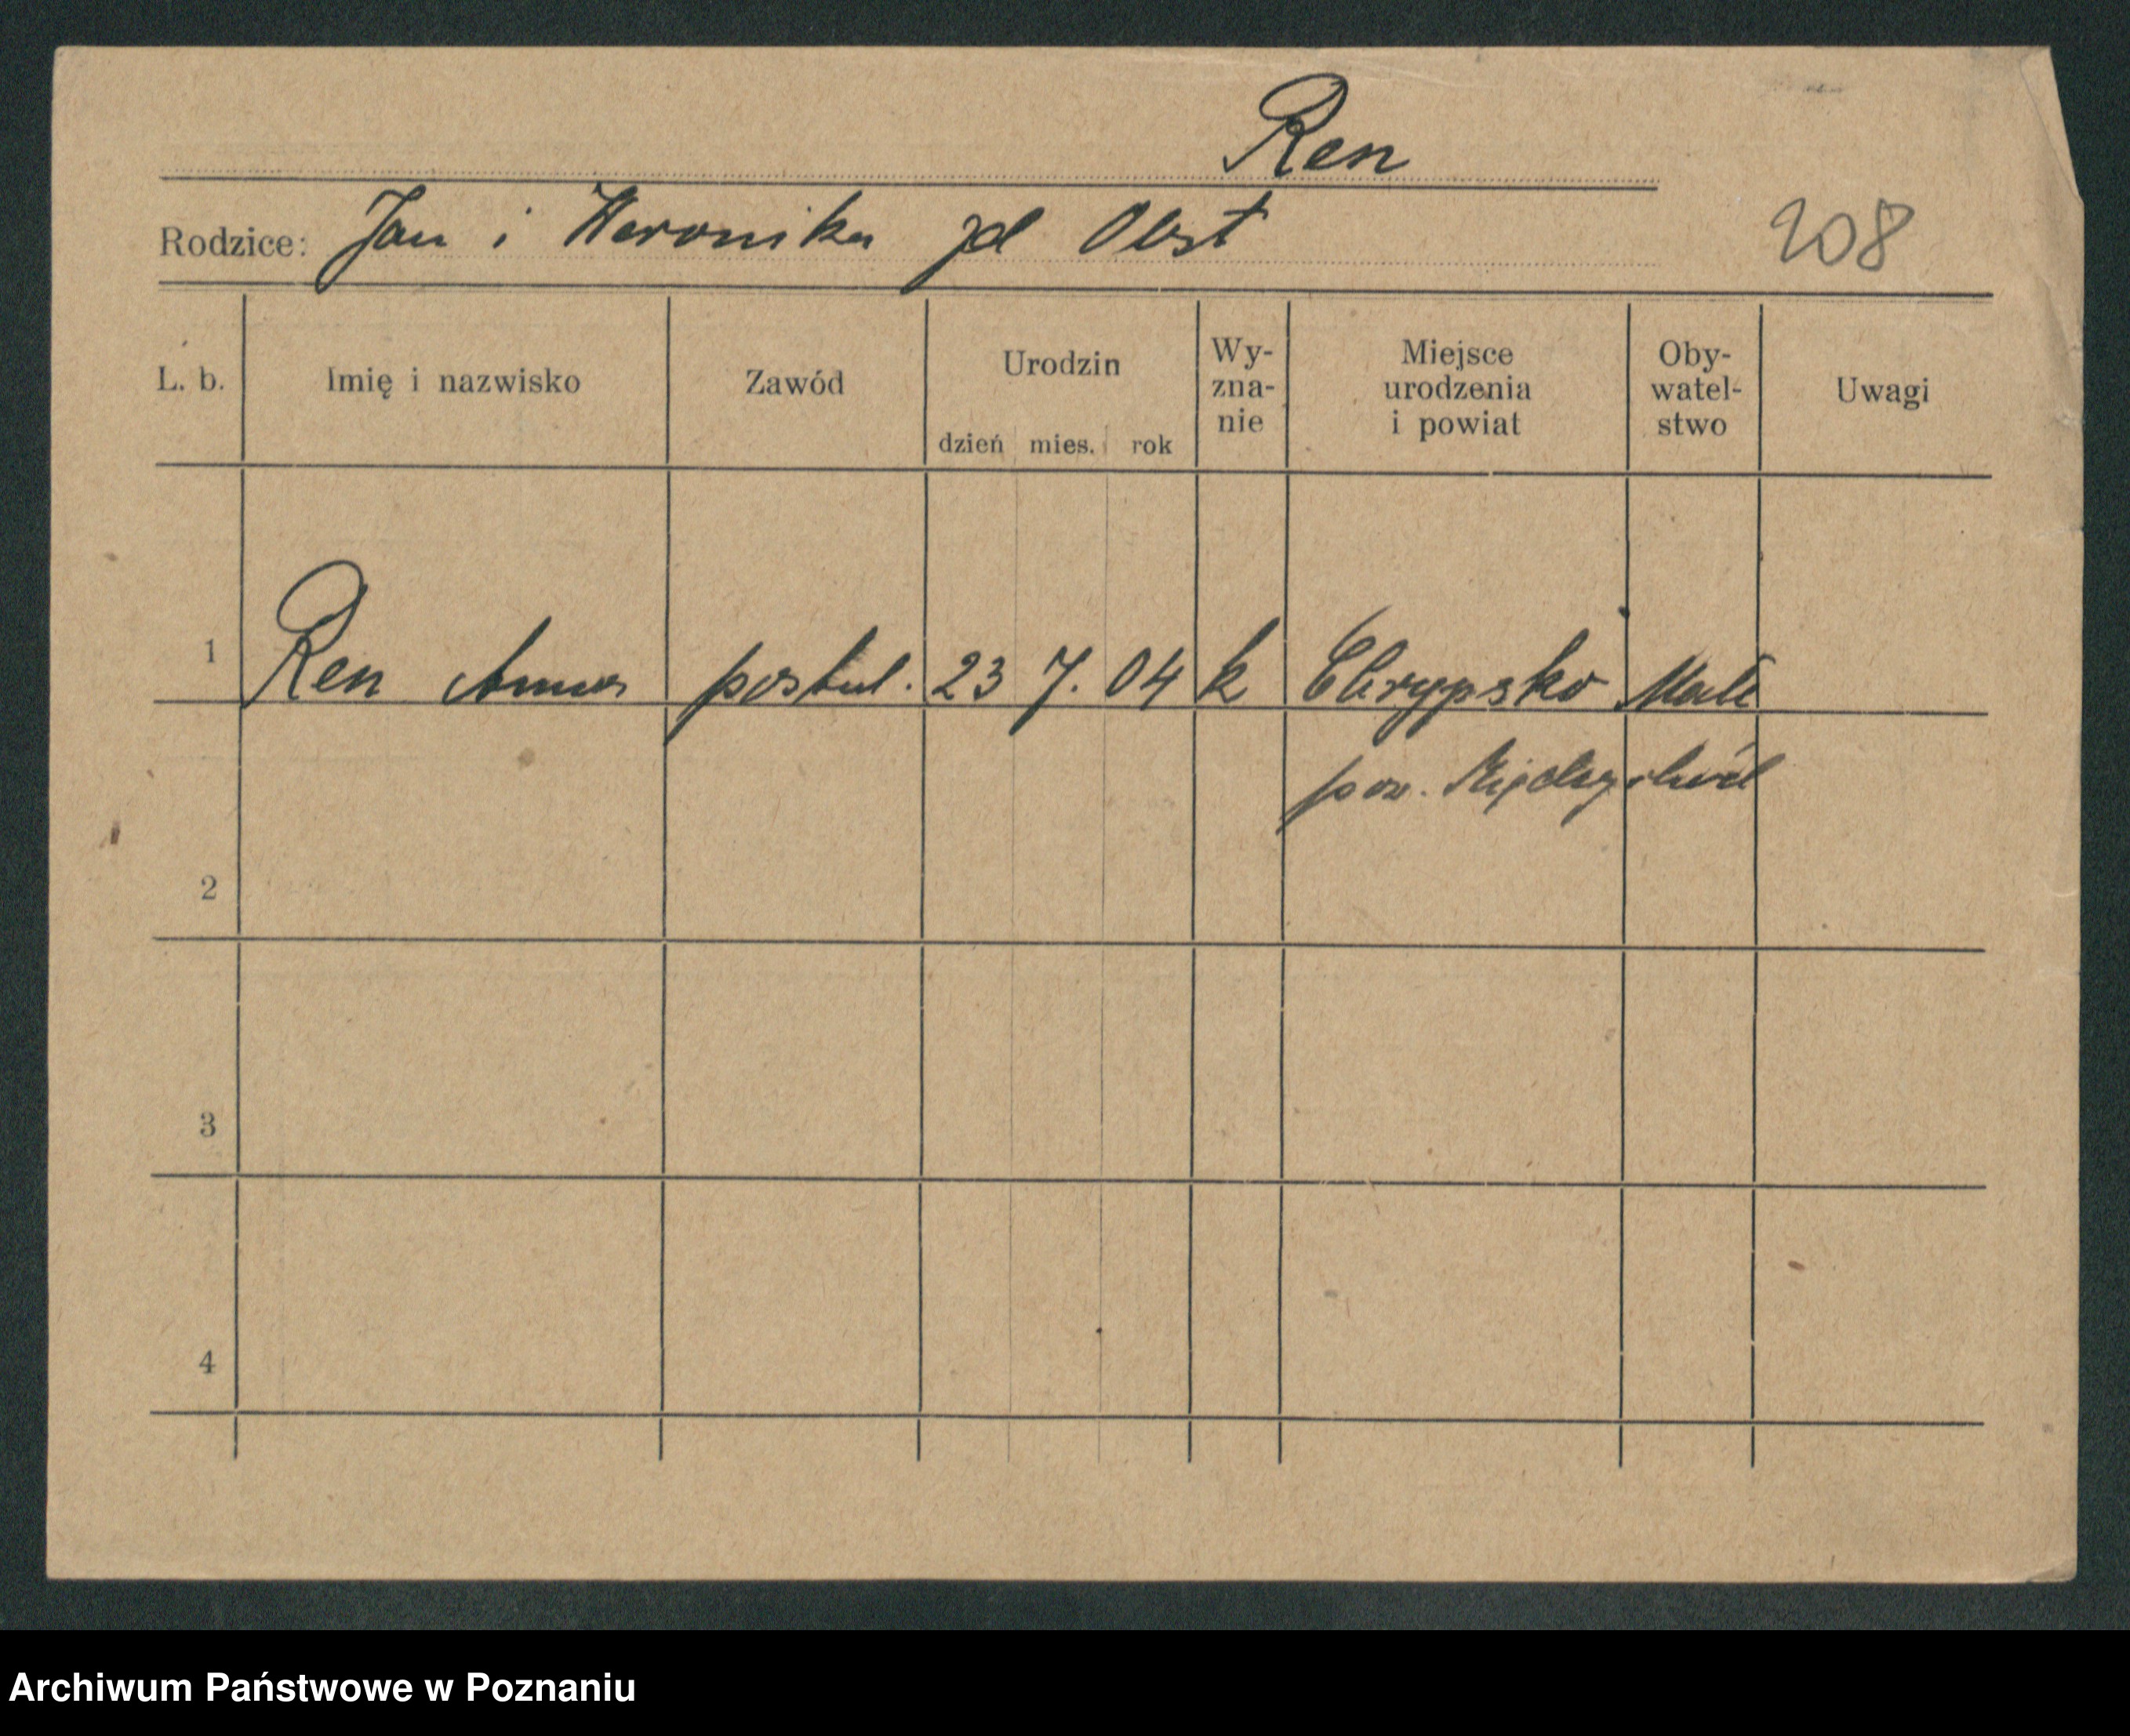 Ren
Rodzice: Jan i Weronika zd Obst
208
L. b.
Imię i nazwisko
Zawód
Urodzin
dzień mies. rok
Wy-
zna-
nie
Miejsce
urodzenia
i powiat
Oby-
watel-
stwo
Uwagi
1 Ren Anna postul. 23 7. 04 k Chrypsko Małe
pow. Międzychód
2
3
4
Archiwum Państwowe w Poznaniu